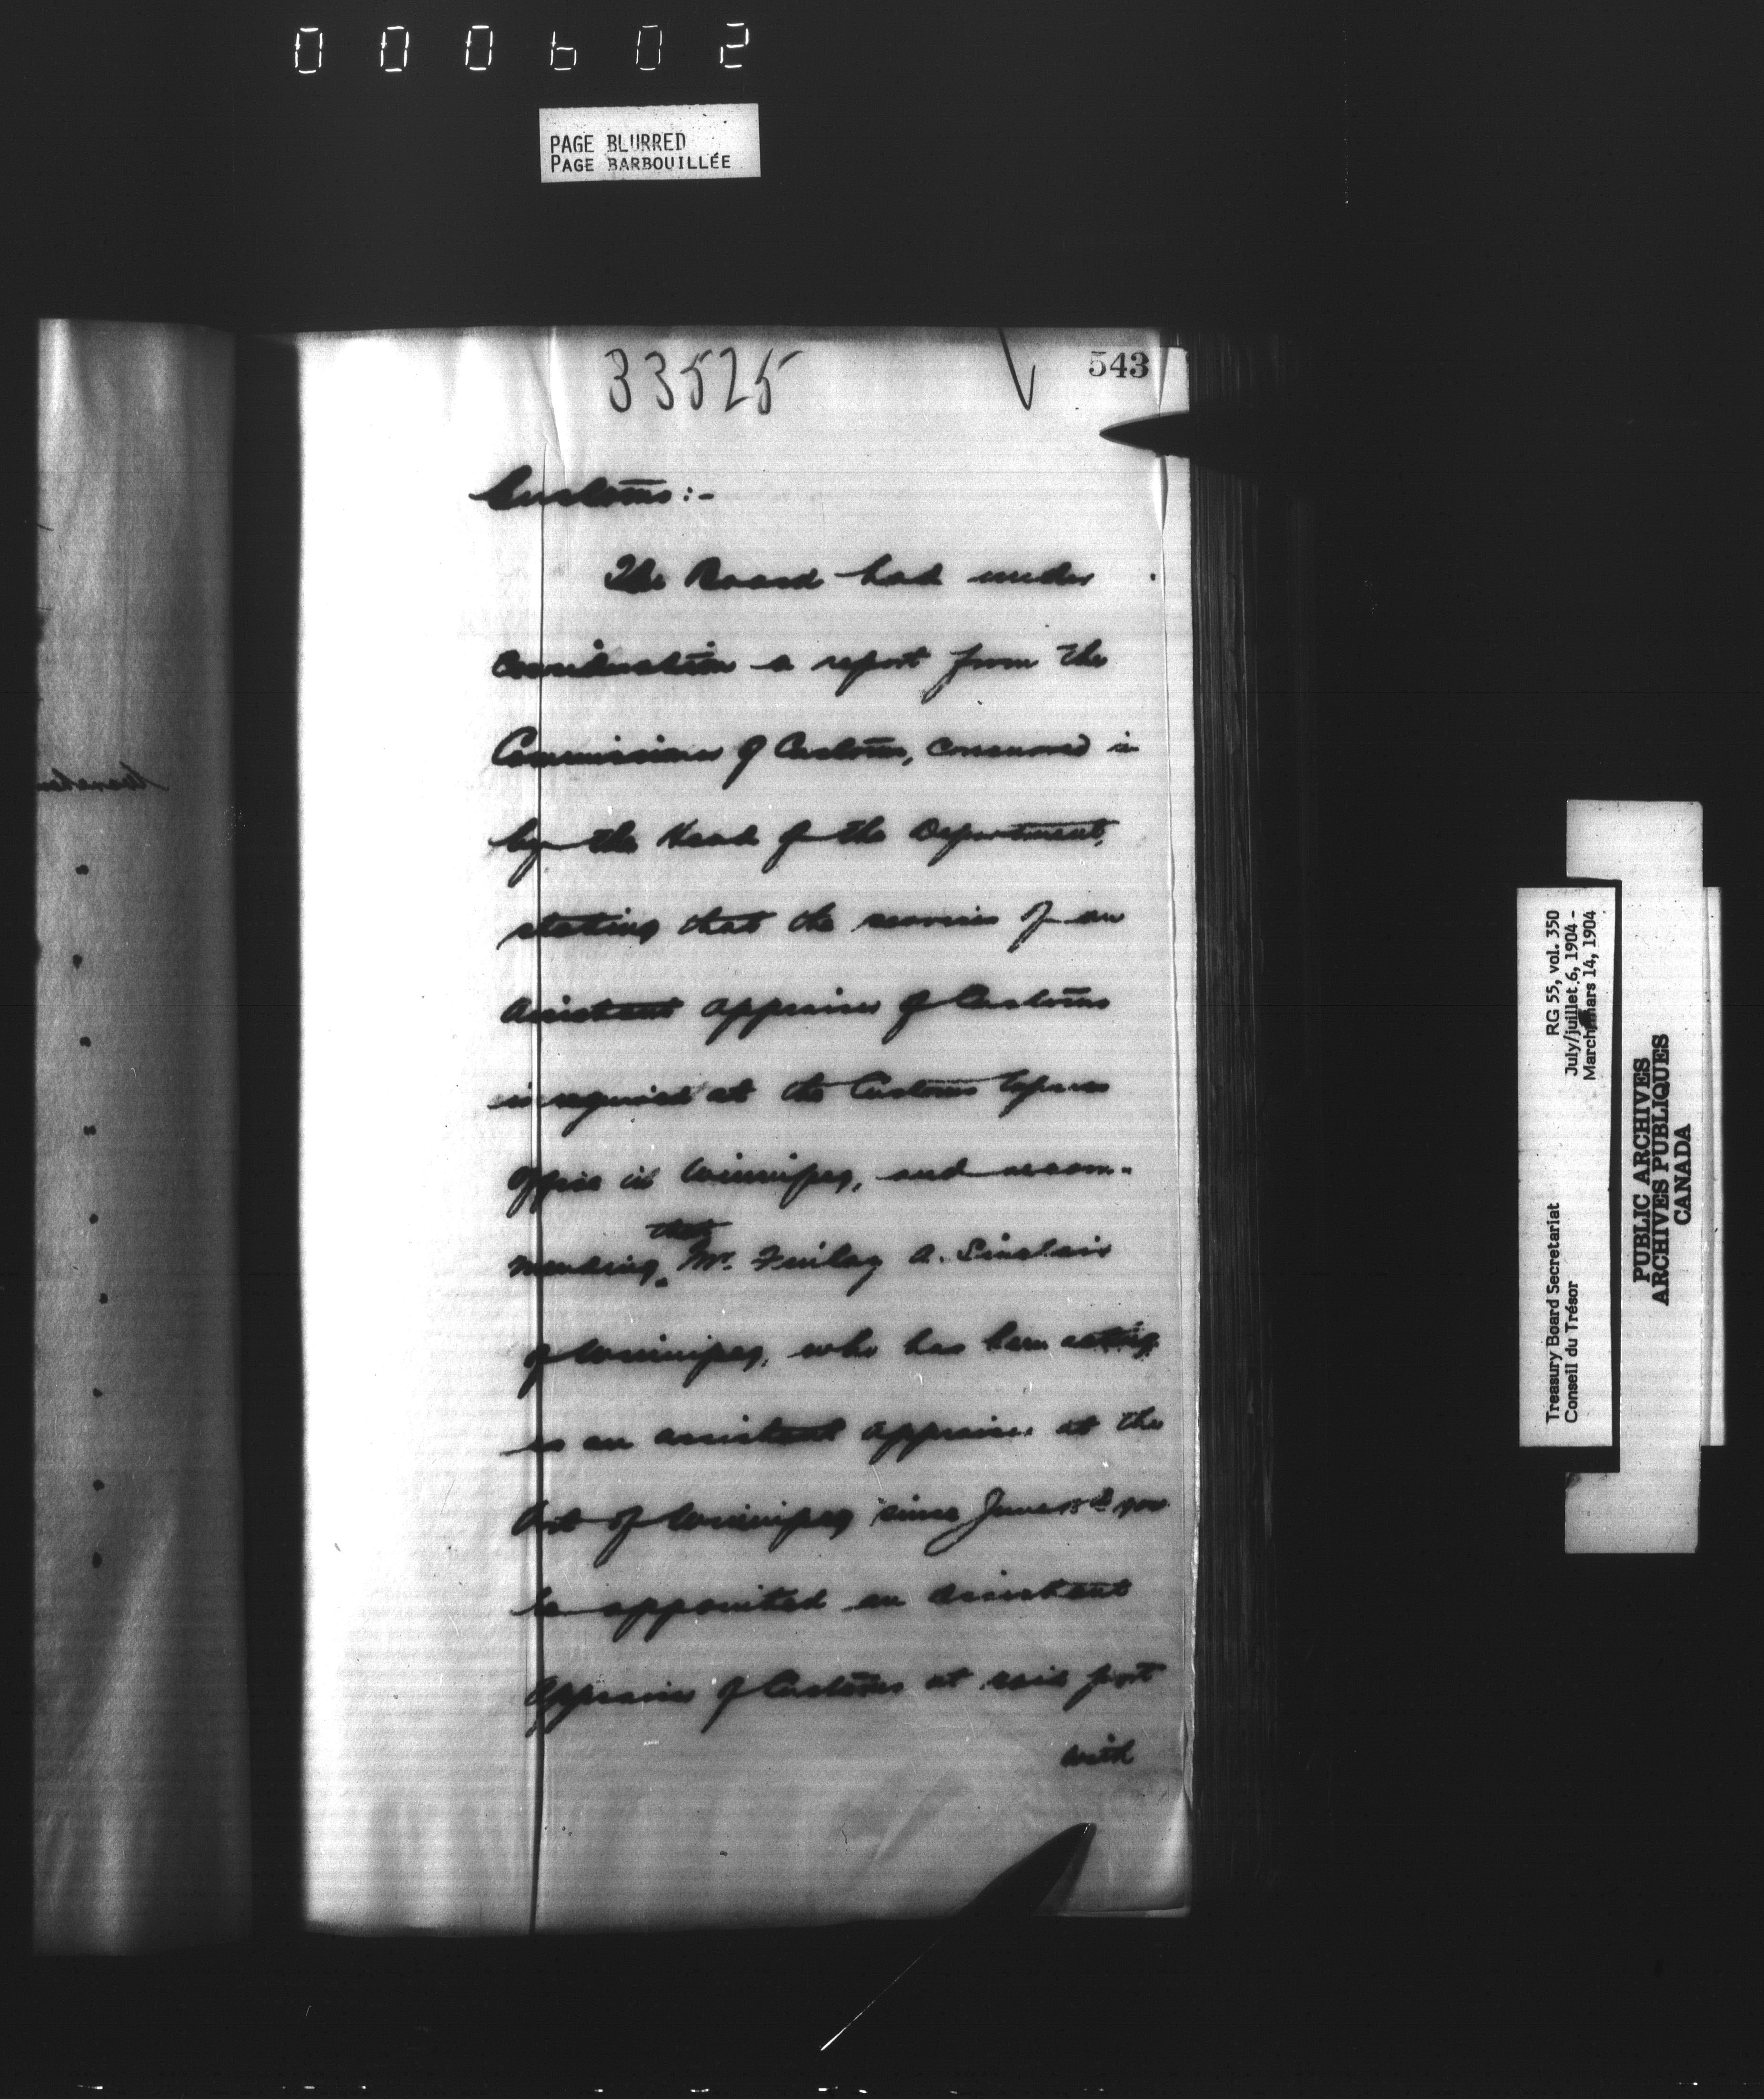 000602
PAGE BLURRED
PAGE BARBOUILLÉE
33525
543
Customs:-
The Board had under
consideration a report from the
Commissioner of Customs, concurred in
by the Head of the Department,
stating that the services of an
Assistant Appraiser of Customs
is required at the Customs Express
Office in Winnipeg, and recom-
mending that Mr. Finlay A. Sinclair
of Winnipeg, who has been acting
as an assistant appraiser at the
Port of Winnipeg since June
be appointed an Assistant
Appraiser of Customs at said port
with
Treasury Board Secretariat RG 55, vol. 350
Conseil du Trésor July/juillet 6, 1904 -
March/mars 14, 1904
PUBLIC ARCHIVES
ARCHIVES PUBLIQUES
CANADA